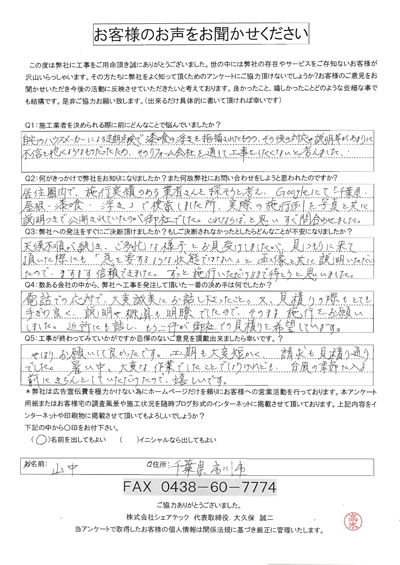 お客様のお声をお聞かせください
この度は弊社に工事をご用命頂き誠にありがとうございました。世の中には弊社の存在やサービスをご存知ないお客様が
沢山いらっしゃいます。その方たちに弊社をよく知って頂くためのアンケートにご協力頂けないでしょうか?お客様のご意見をお
聞かせいただき今後の活動に反映させていただきたいと考えております。良かったこと、嬉しかったことなどの些細な事で
も結構です。是非ご協力お願い致します。(出来るだけ具体的に書いて頂ければ幸いです)
Q1:施工業者を決められる際に前にどんなことで悩んでいましたか?
自宅のハウスメーカーによる定期点検で漆喰の浮きを指摘されたものの、その後の対応や説明等があまりに
不信を抱くようなものだったため、やりフォーム会社を通して工事をしたくないと考えました。
Q2:何がきっかけで弊社をお知りになりましたか?また何故弊社にお問い合わせをしようと思われたのですか?
居住圏内で、施行実績のある業者さんを探そうと考え、Googleにて「千葉県・
屋根・漆喰・浮き」で検索しました所、実際の施行例を写真と共に
説明つきで公開されていたのが御社でした。これならば と思い すぐ問合せました。
Q3:弊社への発注をすぐにご決断頂けましたか?もしご決断されなかったとしたらどんなことが不安になりましたか?
天候不順が続き、ご多忙な様子とお見受けしましたが、見つもりに来て
頂いた際にも「急を要するような状態ではない」と画像と共に説明いただい
たので、ますます信頼できました。ずっと施行いただけるまで待とうと思いました。
Q4:数ある会社の中から、弊社へ工事を発注して頂いた一番の決め手は何でしたか?
電話での応対で、大変誠実にお話し下さったこと。又、見積りの際もとても
手ぎわ良く、説明や機具も明瞭でしたので、そのまま施行をお願い
しました。近所にも話し、もう一件が御社での見積りを希望しています。
Q5:工事が終わってみていかがですか忌憚のないご意見を頂戴出来ましたら幸いです。?
やはりお願いして良かったです。工期も大変短かく、請求も見積り通り
でした。暑い中、大変な作業でしたことでしょうけれども、台風の季節に入る
前にきちんとしていただけたので、嬉しいです。
*弊社は広告宣伝費を極力かけない為にホームページだけを頼りにお客様への営業活動を行っております。本アンケート
用紙またはお客様宅の調査風景や施工状況を随時ブログ形式のインターネットに掲載させて頂いております。上記内容をイ
ンターネットや印刷物に掲載させて頂いてもよろしいでしょうか?
下記の中から〇印をお付下さい。
(〇)名前を出してもよい ( )イニシャルなら出してもよい
お名前: 山中 ご住所: 千葉県市川市
FAX 0438-60-7774
ご協力ありがとうございました。
株式会社シェアテック 代表取締役 大久保 誠二
当アンケートで取得したお客様の個人情報は関係法規に基づき厳正に管理いたします。